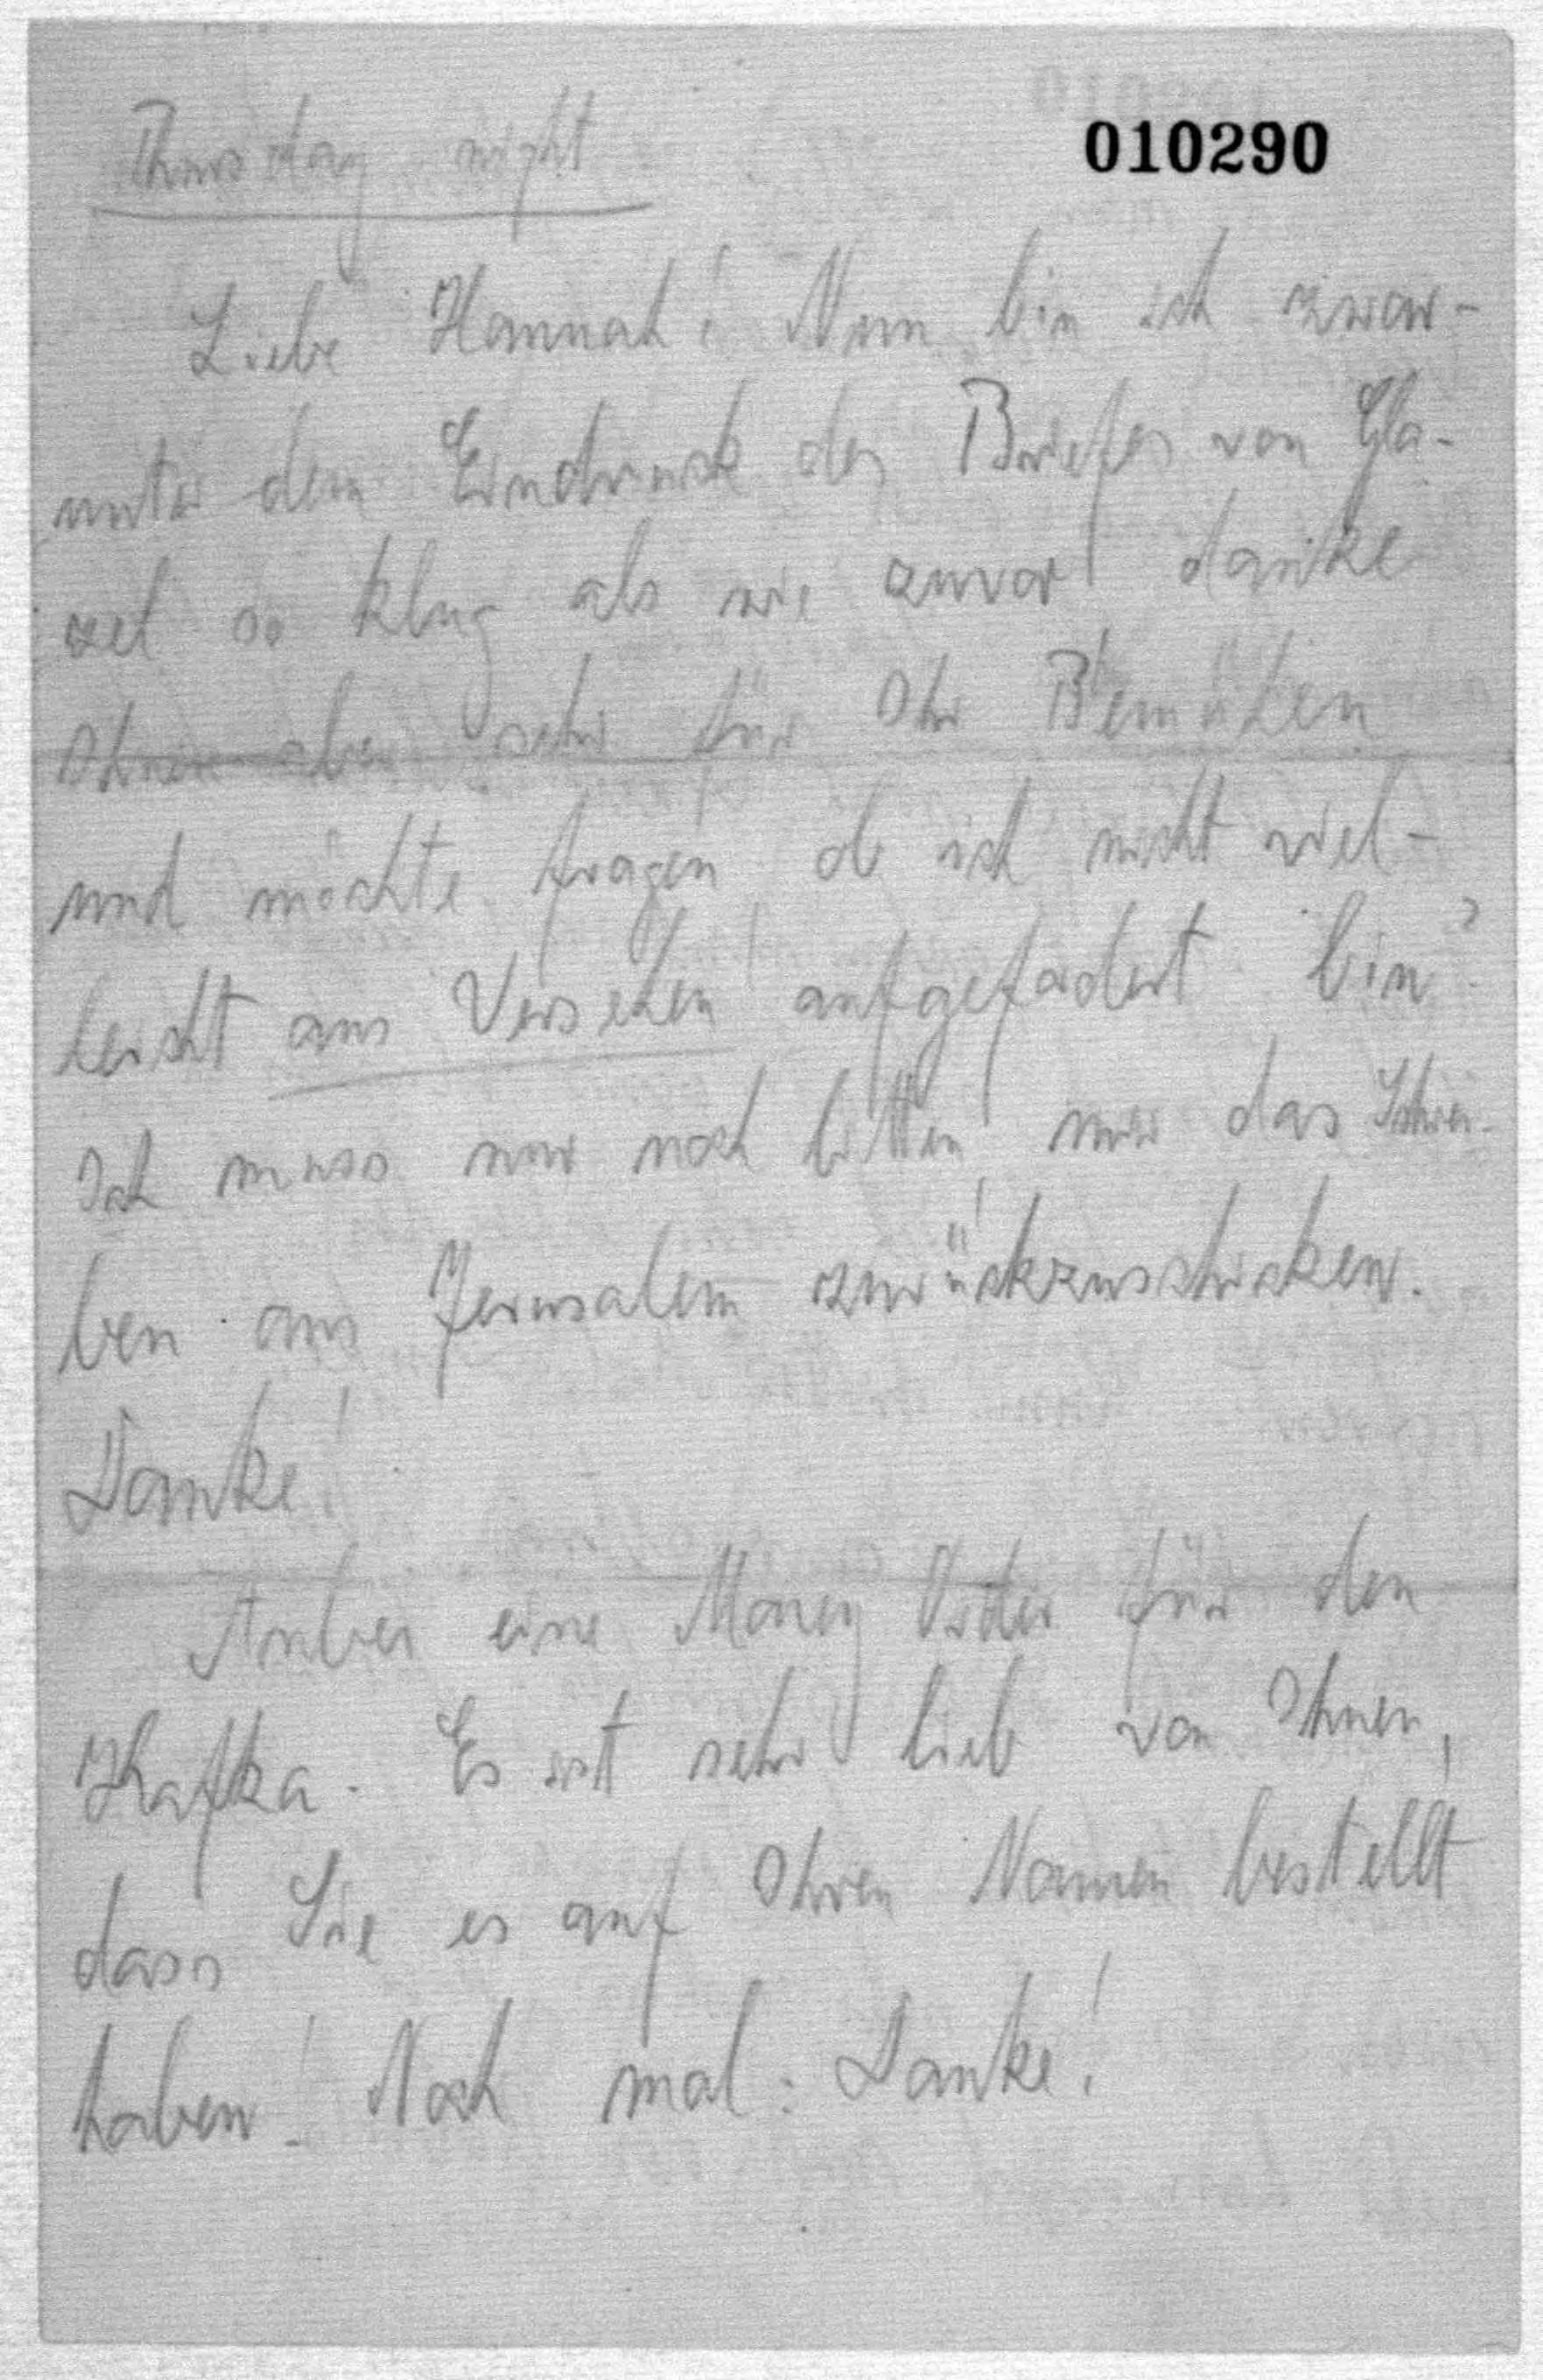 Thursday night
010290
Liebe Hannah! Nun bin ich zwar -
unter dem Eindruck des Briefes von Gla-
zel so klug als wie zuvor! danke
Ihnen aber sehr für Ihr Bemühen
und möchte fragen ob ich nicht viel-
leicht aus Versehen aufgefordert bin?
Ich muss nur noch bitten mir das Schrei-
ben aus Jerusalem zurückzuschicken.
Danke!
Anbei eine Money Order für den
Kafka. Es ist sehr lieb von Ihnen,
dass Sie es auf Ihren Namen bestellt
haben! Noch mal: Danke!